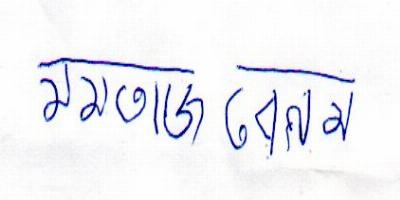 মমতাজ বেগম